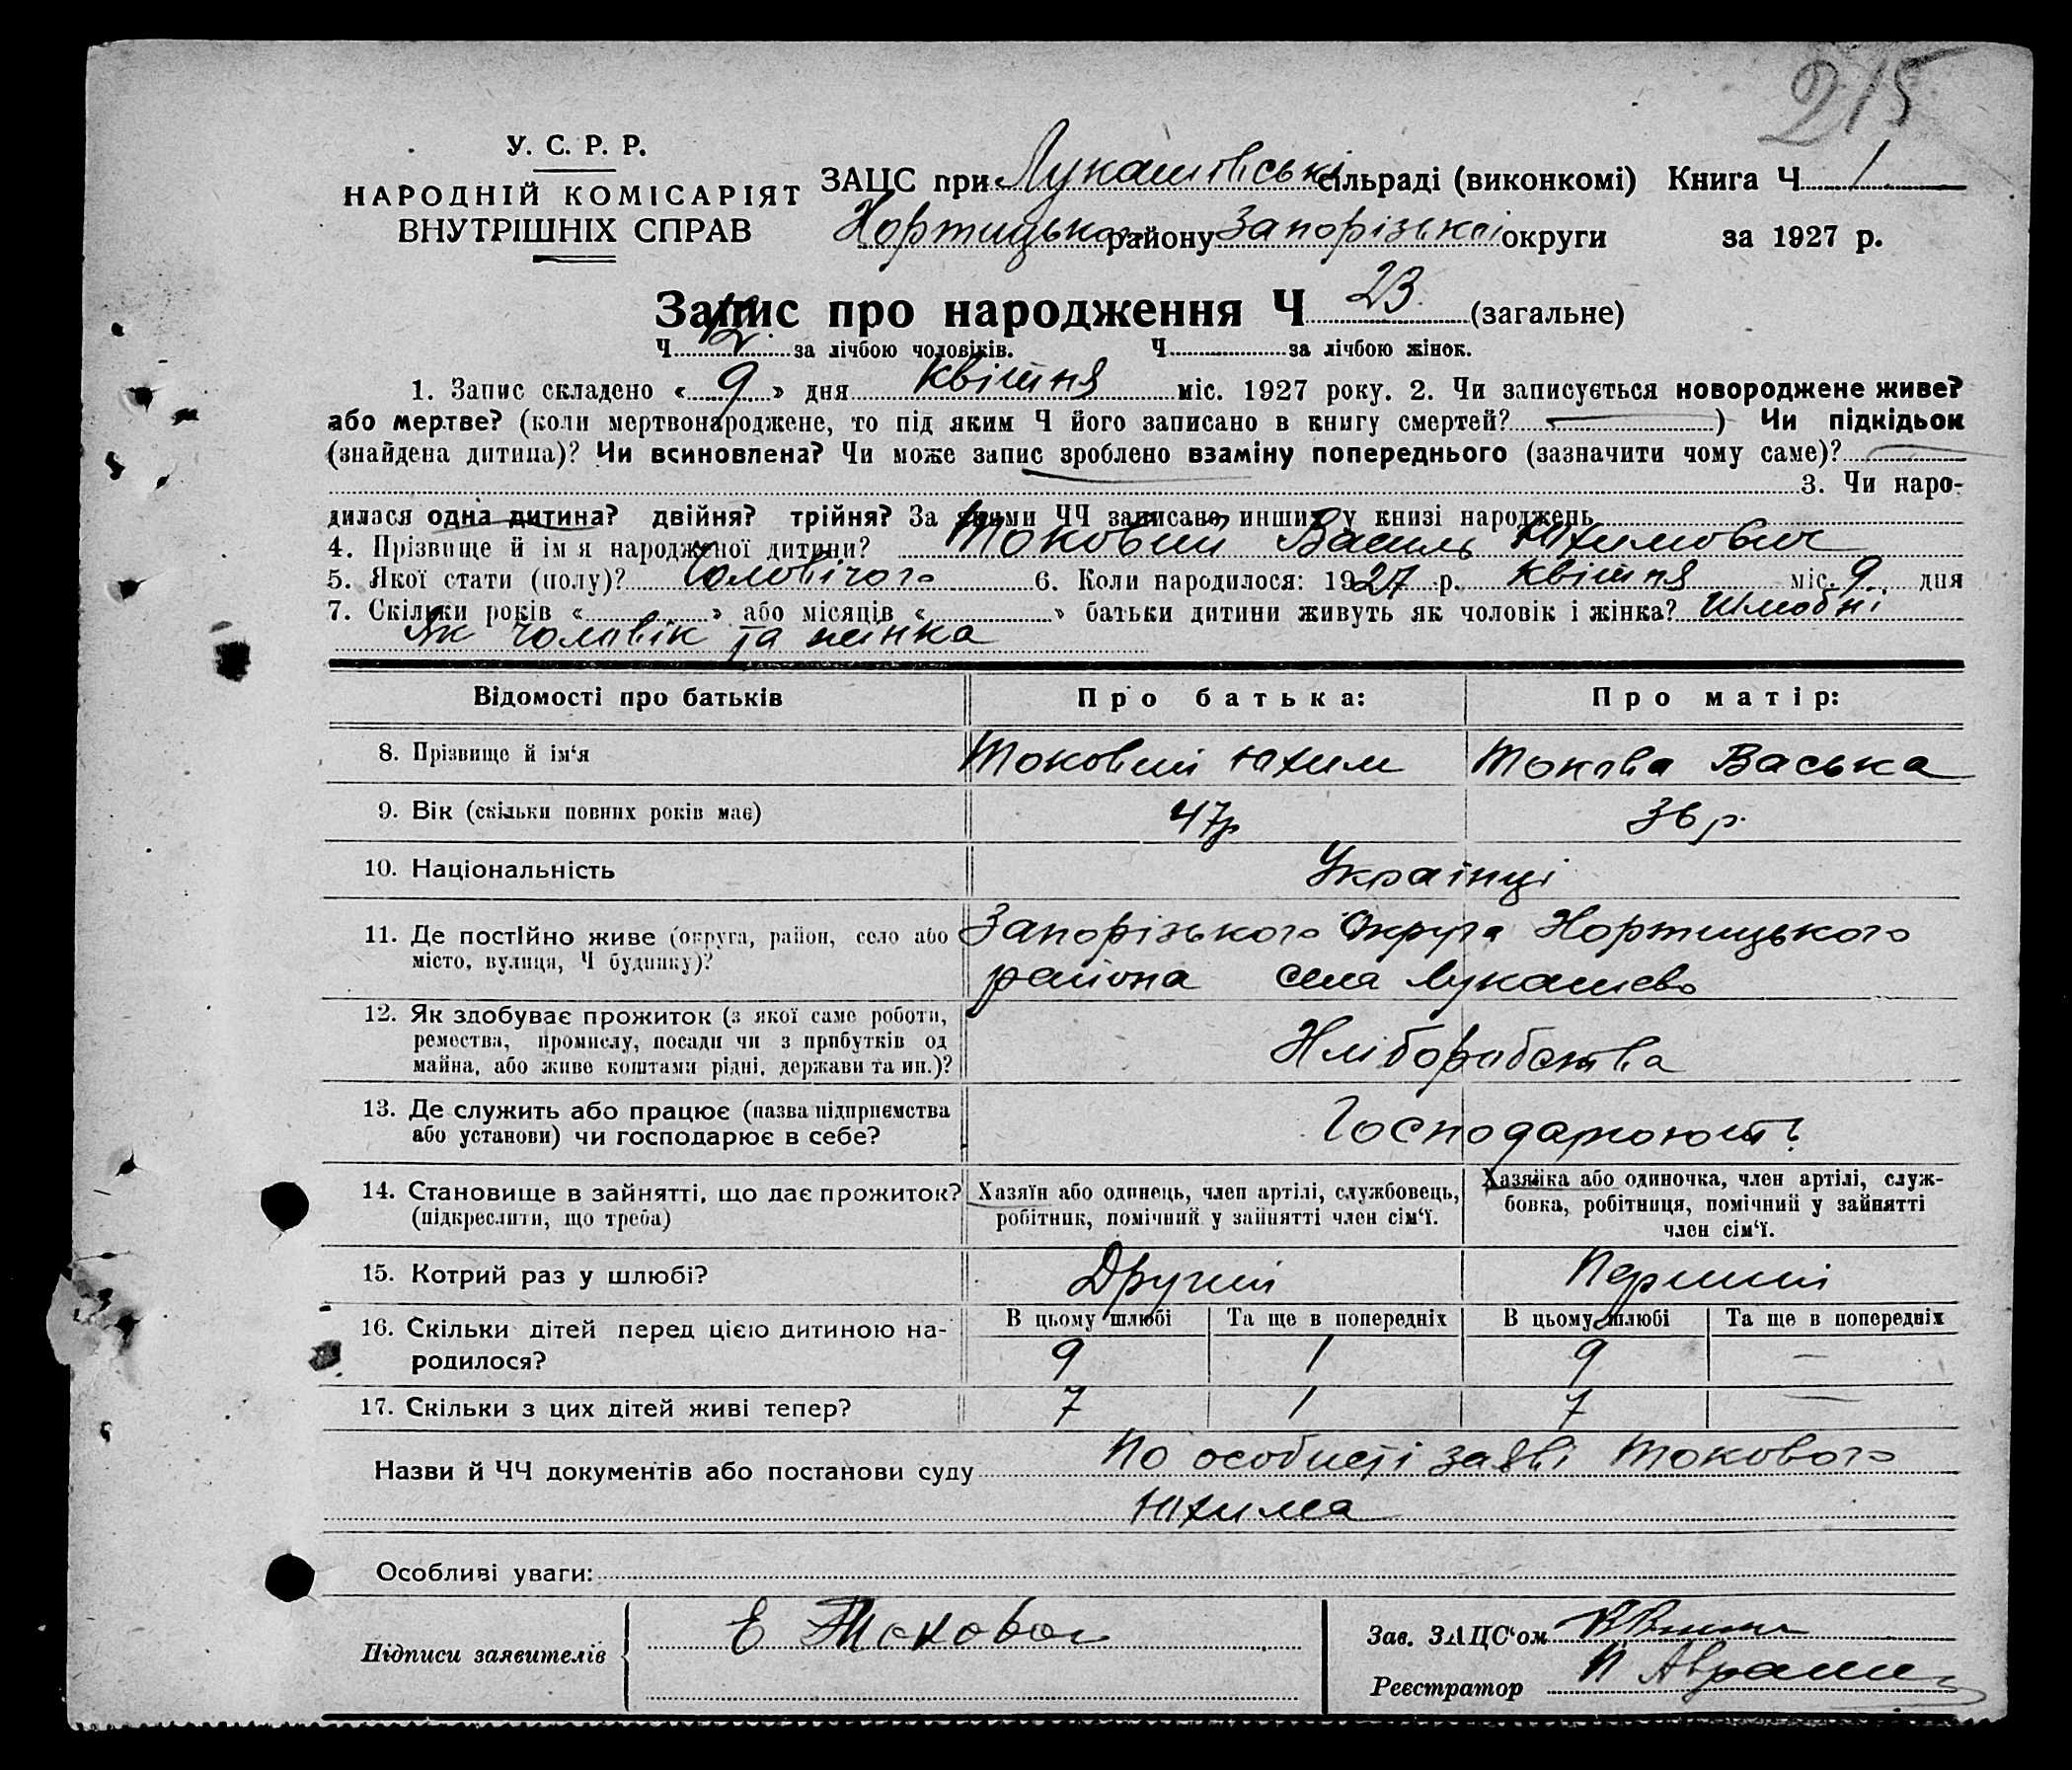 215
У. С. Р. Р.
НАРОДНІЙ КОМІСАРІЯТ
ВНУТРІШНІХ СПРАВ
ЗАЦС при Лукашовські сільраді (виконкомі) Книга Ч 1
Хортицького району Запорізької округи за 1927 р.
Запис про народження Ч 23 (загальне)
Ч 12 за лічбою чоловіків. Ч за лічбою жінок.
1. Запис складено « 9 » дня квітня міс. 1927 року. 2. Чи записується новороджене живе?
або мертве? (коли мертвонароджене, то під яким Ч його записано в книгу смертей? — ) Чи підкідьок
(знайдена дитина)? Чи всиновлена? Чи може запис зроблено взаміну попереднього (зазначити чому саме)? —
3. Чи наро-
дилася одна дитина? двійня? трійня? За якими ЧЧ записано инших у книзі народжень
4. Прізвище й ім'я народженої дитини? Токовий Василь Юхимович
5. Якої стати (полу)? Чоловічого 6. Коли народилося: 1927 р. квітня міс. 9 дня
7. Скільки років « » або місяців « » батьки дитини живуть як чоловік і жінка? Шлюбні
Як чоловік та жінка
Відомості про батьків Про батька: Про матір:
8. Прізвище й ім'я Токовий Юхим Токова Васька
9. Вік (скільки повних років має) 47 р 36 р.
10. Національність Українці
11. Де постійно живе (округа, район, село або Запорізького Округа Хортицького
місто, вулиця, Ч будинку)? района села Лукашево
12. Як здобуває прожиток (з якої саме роботи,
ремества, промислу, посади чи з прибутків од Хліборобства
майна, або живе коштами рідні, держави та ин.)?
13. Де служить або працює (назва підприємства Господарюють
або установи) чи господарює в себе?
14. Становище в зайнятті, що дає прожиток? Хазяїн або одинець, член артілі, службовець, Хазяйка або одиночка, член артілі, служ-
(підкреслити, що треба) робітник, помічний у зайнятті член сім'ї. бовка, робітниця, помічний у зайнятті
член сім'ї.
15. Котрий раз у шлюбі? Другий Перший
16. Скільки дітей перед цією дитиною на- В цьому шлюбі Та ще в попередніх В цьому шлюбі Та ще в попередніх
родилося? 9 1 9 —
17. Скільки з цих дітей живі тепер? 7 1 7 —
Назви й ЧЧ документів або постанови суду По особисті заяві Токового
Юхима
Особливі уваги:
Підписи заявителів Е Токовой
Зав. ЗАЦС'ом
Реєстратор П